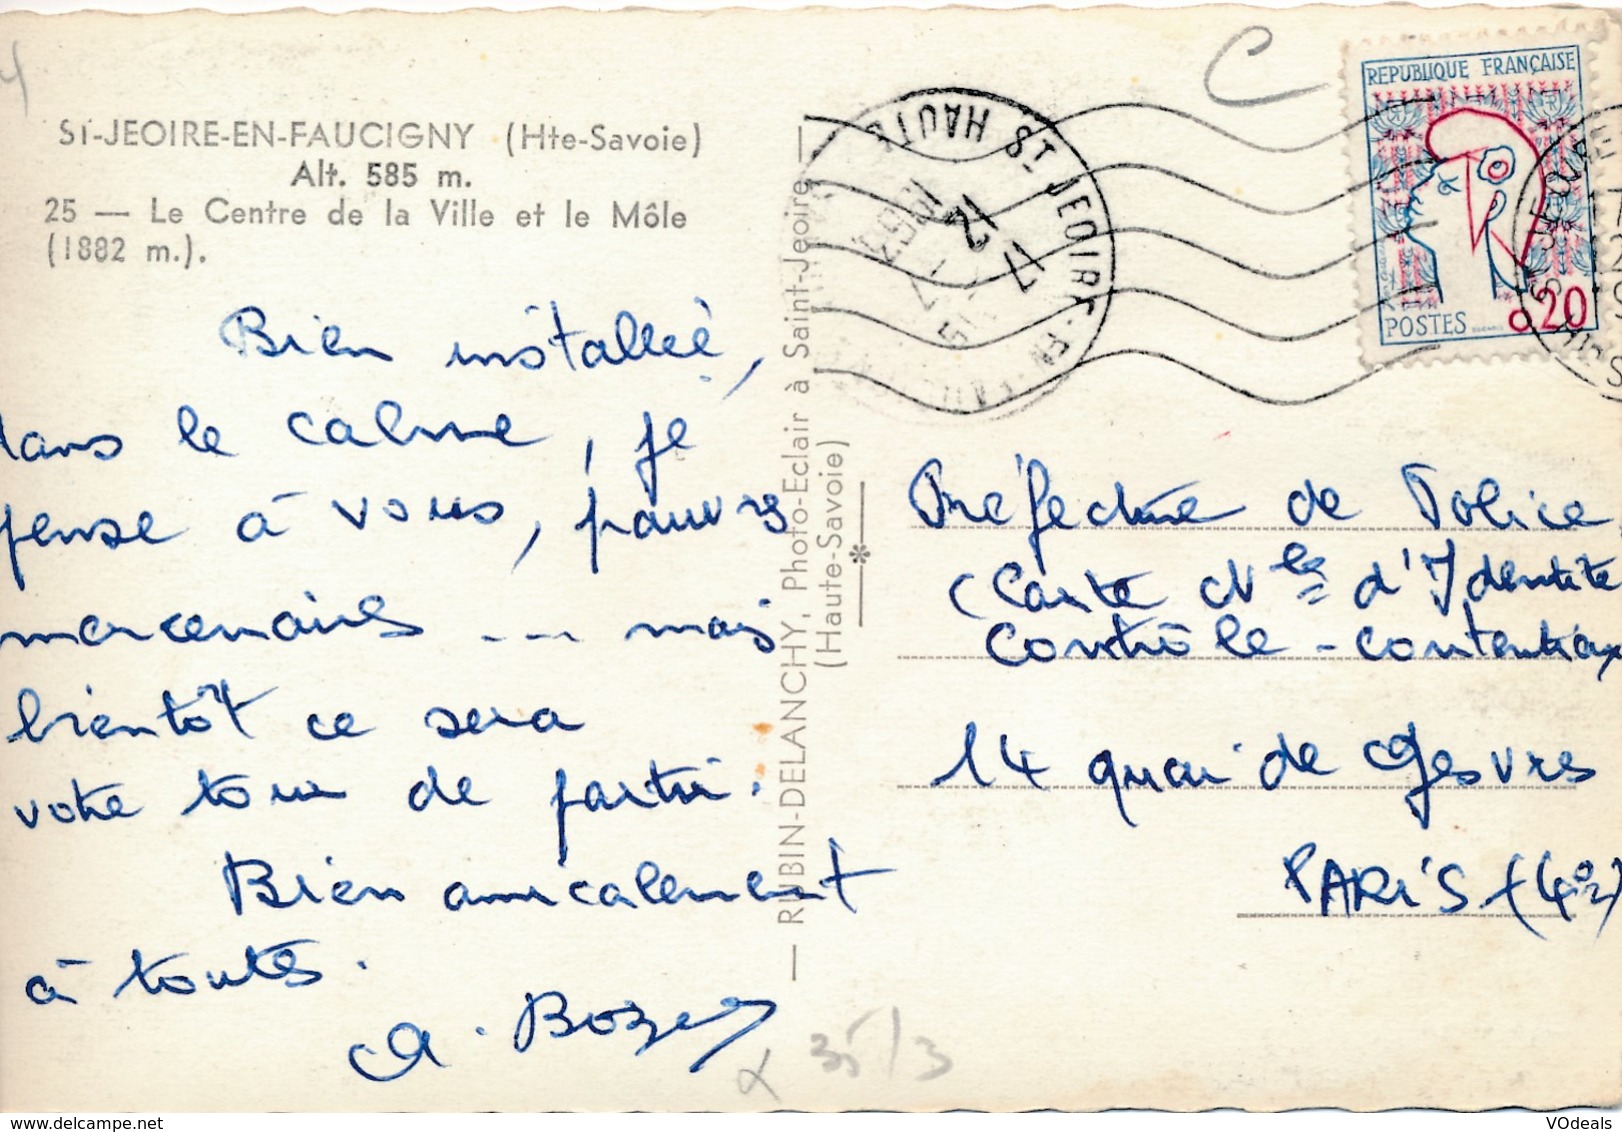 ST-JEOIRE-EN-FAUCIGNY (Hte-Savoie)
Alt. 585 m.
25 — Le Centre de la Ville et le Môle
(1882 m.).
Bien installée,
dans le calme, je
pense à vous, pauvres
mercenaires --- mais
bientôt ce sera
votre tour de partir.
Bien amicalement
à toutes.
A. Bozey
— RUBIN-DELANCHY, Photo-Eclair à Saint-Jeoire —
(Haute-Savoie)
ST JEOIRE-EN-FAUCIGNY
HAUTE
17
12
REPUBLIQUE FRANÇAISE
POSTES 0,20
C
Préfecture de Police
(Carte Nle d'Identité
Contrôle - Contentieux
14 quai de Gesvres
PARIS (4e)
35/3
VOdeals